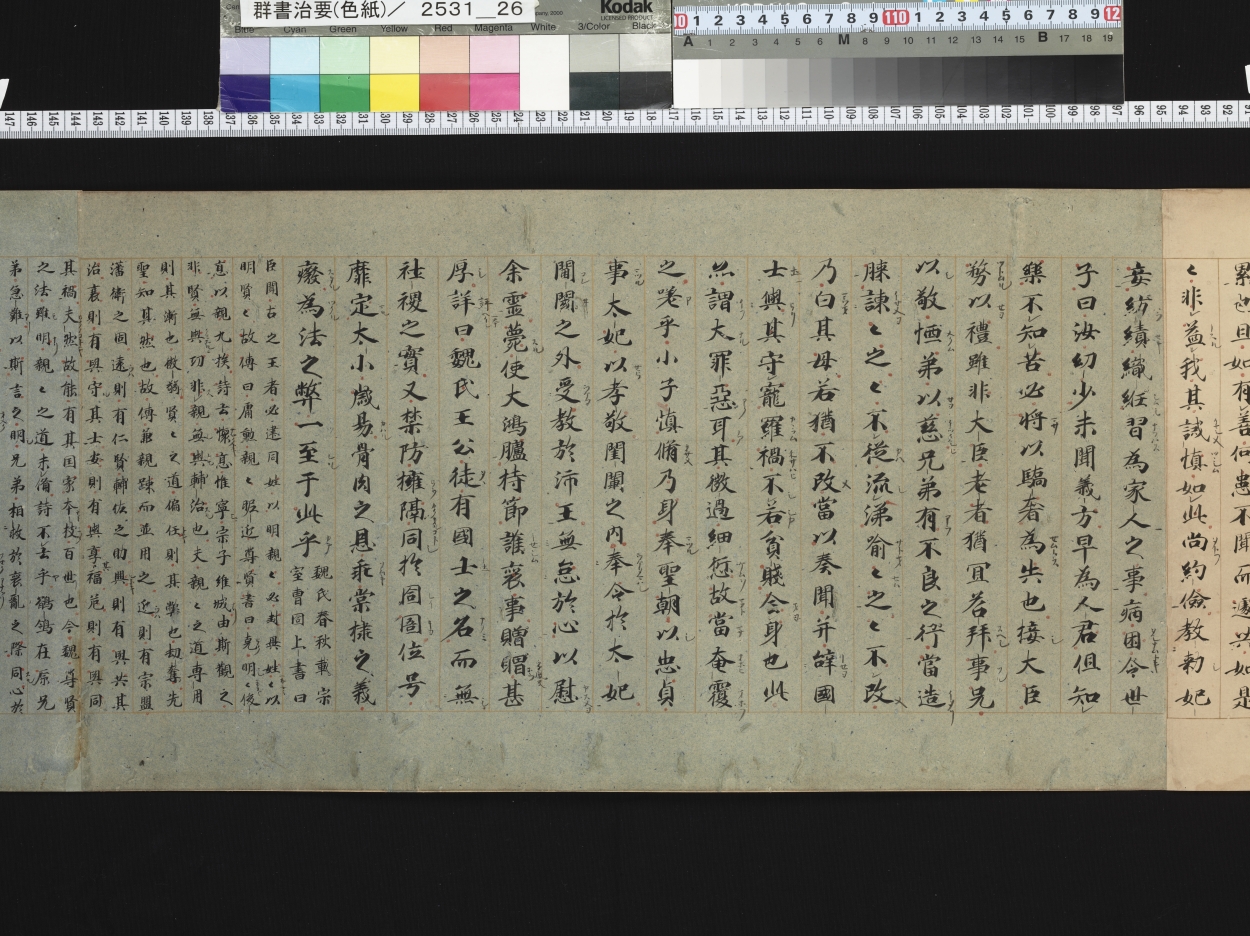 群書治要(色紙)／ 2531__26
Kodak
LICENSED PRODUCT
Blue Cyan Green Yellow Red Magenta White 3/Color Black
累也且如有善何患不聞而遽共如是
〻非益我其誠慎如此尚約儉教勅妃
妾紡績織紝習為家人之事病困令世
子曰汝幼少未聞義方早為人君但知
樂不知苦必將以驕奢為失也接大臣
務以禮雖非大臣老者猶宜荅拜事兄
以敬恤弟以慈兄弟有不良之行當造
膝諫〻之〻不從流涕喻〻之〻不改
乃白其母若猶不改當以奏聞并辝國
士與其守寵羅禍不若貧賤全身也此
亦謂大罪惡耳其微過細愆故當奄覆
之嗟乎小子慎脩乃身奉聖朝以忠貞
事太妃以孝敬閨闈之內奉令於太妃
閫閾之外受教於沛王無怠於心以慰
余靈薨使大鴻臚持節護喪事贈賵甚
厚評曰魏氏王公徒有國士之名而無
社稷之實又禁防擁隔同於囹圄位号
靡定大小歲易骨肉之恩乖棠棣之義
癈為法之弊一至于此乎
魏氏春秋載宗
室曹冏上書曰
臣聞古之王者必建同姓以明親〻必封異姓以
明賢〻故傳曰庸勳親〻昵近尊賢書曰克明〻俊
悳以親九族詩云懷悳惟寧宗子維城由斯觀之
非賢無與功非親無與輔治也夫親〻之道専用
則其漸也微弱賢〻之道偏任則其弊也刼奪先
聖知其然也故傅兼親踈而並用之近則有宗盟
藩衛之固遠則有仁賢輔佐之助興則有與共其
治衰則有與守其土安則有與享福危則有與同
其禍夫然故能有其国家本枝百世也今魏尊賢
之法雖明親〻之道未備詩不云乎鶺鴒在原兄
弟急難以斯言之明兄弟相救於喪亂之際同心於